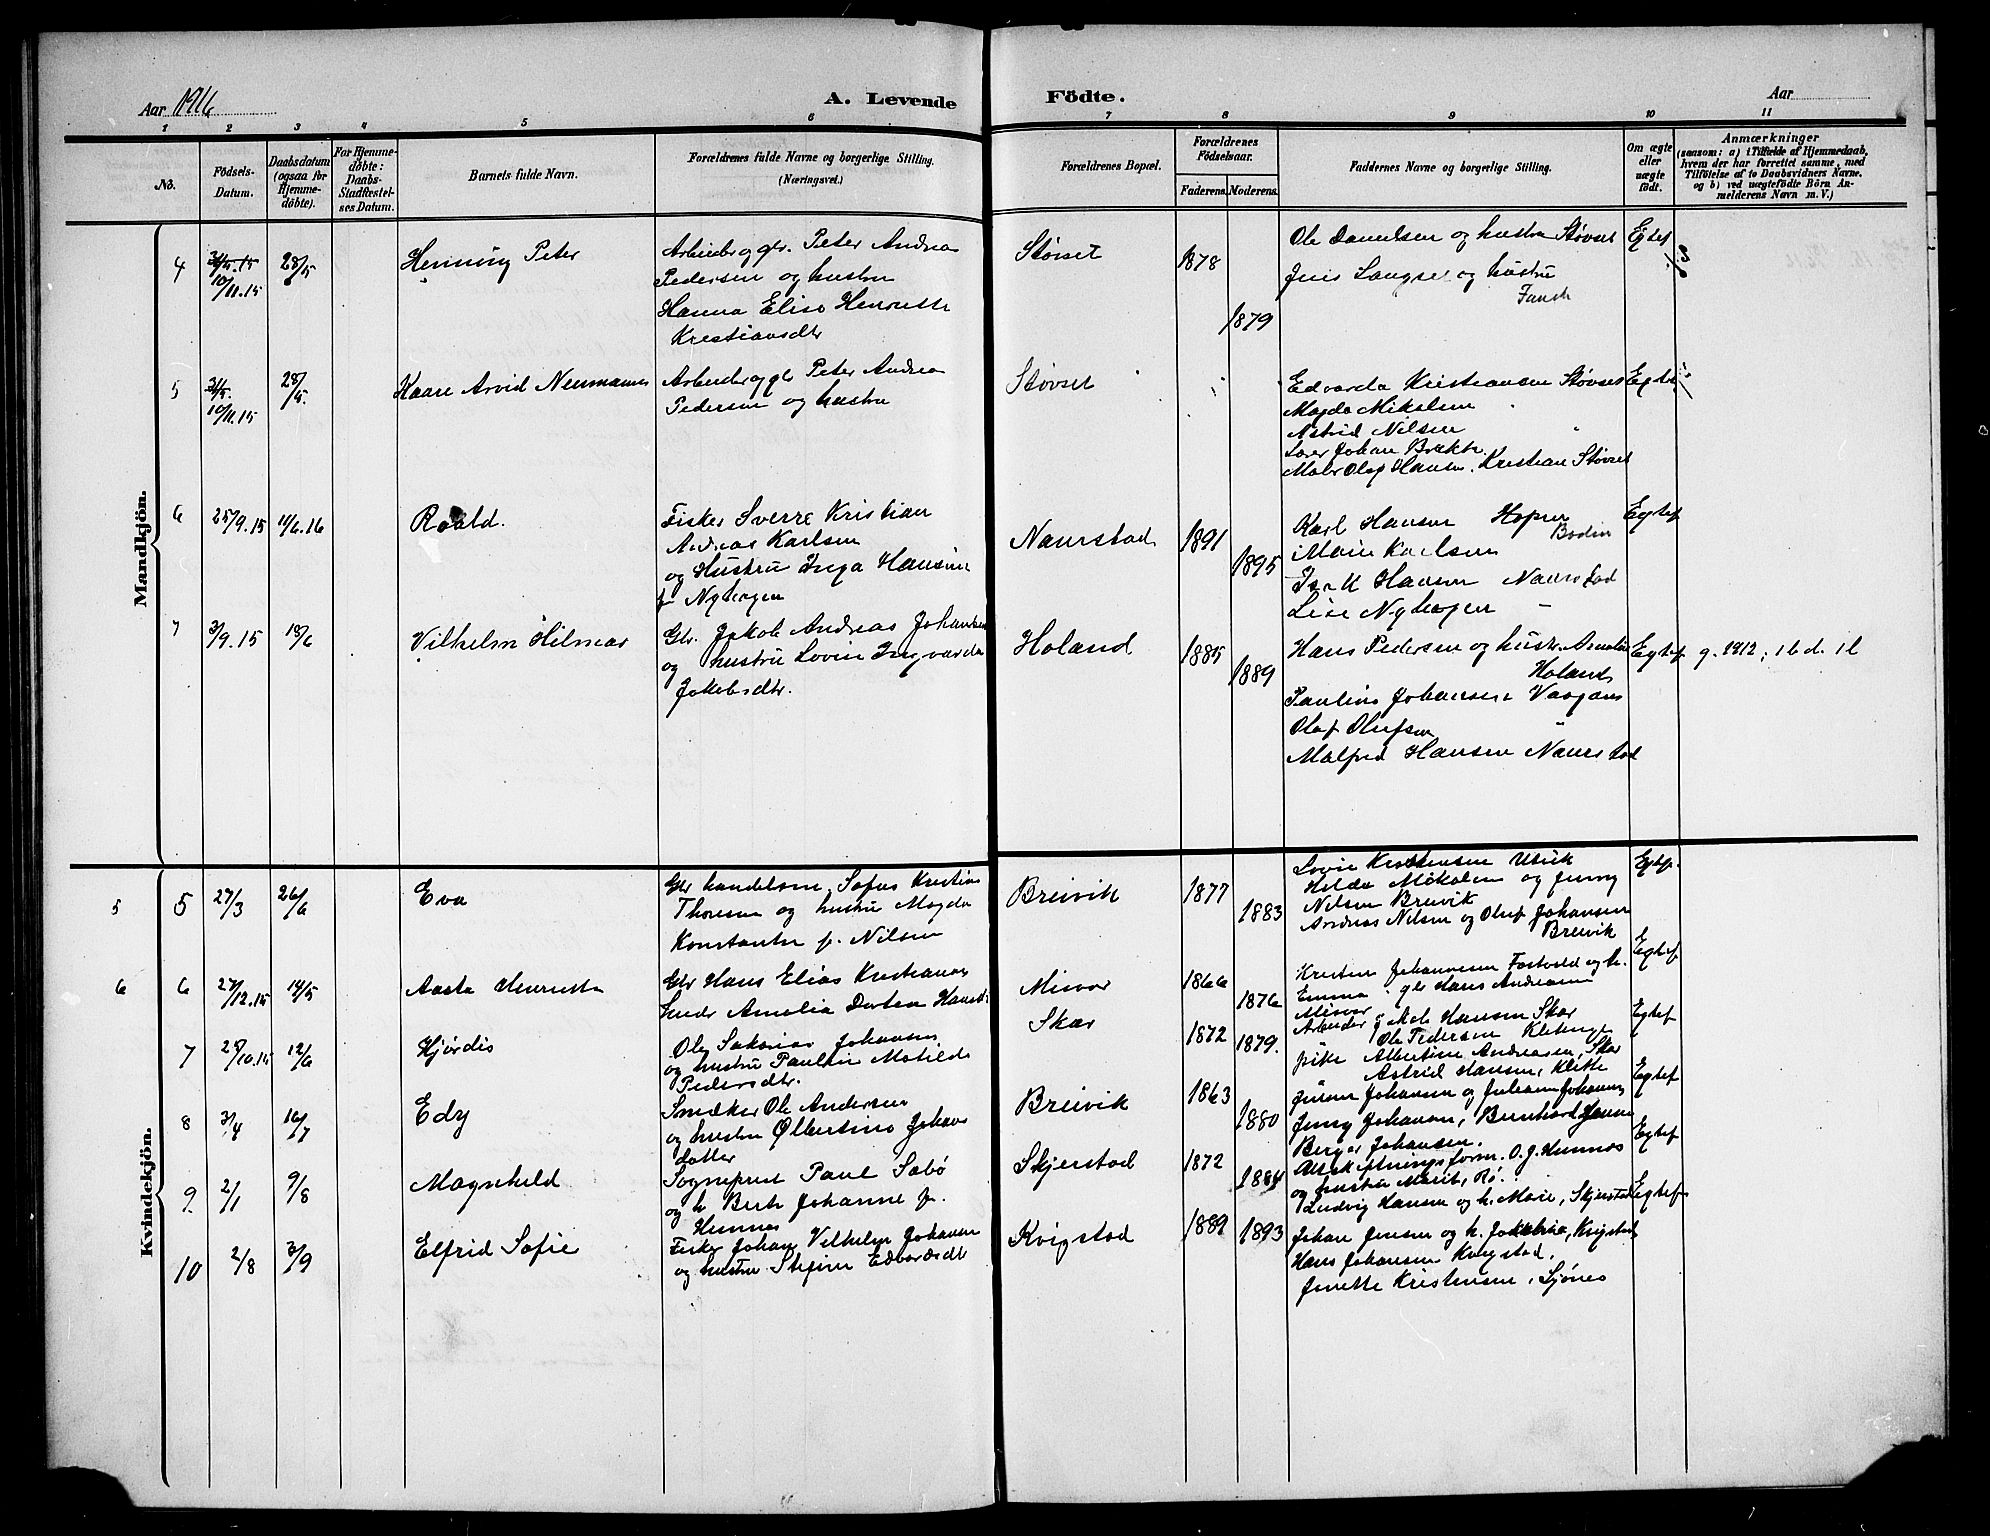 Aar 1916
A. Levende Födte.
Aar
1 2 3 4 5 6 7 8 9 10 11
No.
Födsels-
Datum.
Daabsdatum
(ogsaa for
Hjemme-
döbte).
For Hjemme-
döbte:
Daabs-
Stadfæstel-
ses Datum.
Barnets fulde Navn.
Forældrenes fulde Navne og borgerlige Stilling.
(Næringsvei.)
Forældrenes Bopæl.
Forældrenes
Födselsaar.
Faderens. Moderens.
Faddernes Navne og borgerlige Stilling.
Om ægte
eller
uægte
født.
Anmærkninger
(saasom: a) i Tilfælde af Hjemmedaab,
hvem der har forrettet samme, med
Tilföielse af to Daabsvidners Navne,
og b) ved uægtefödte Börn An-
melderens Navn m. V.)
Mandkjön.
4
31/5.15
10/11.15
28/5
Henning Peter
Arbeider og gbr. Peter Andreas
Pedersen og hustru
Hanna Elise Henriette
Kristiansdtr
Støvset
1878
1879
Ole Danielsen og hustru Støvset
Jens Langset og hustru
Egtef
5
31/5.
10/11.15
28/5.
Kaare Arvid Neumann
Arbeider og gbr Peter Andreas
Pedersen og hustru
Støvset
Edvarda Kristiansen Støvset
Magda Mikalsen
Astrid Nilsen
Lærer Johan Brekke
Maler Olaf Hansen. Kristian Støvset
Egtef
6
25/9.15
11/6.16
Roald.
Fisker Sverre Kristian
Andreas Karlsen
og Hustru Inga Hansine
f. Nyhagen
Naurstad
1891
1895
Karl Hansen Hopen
Bodin
Marie Karlsen
Isak Hansen Naurstad
Lise Nyhagen "
Egtef
7
3/9.15
18/6
Vilhelm Hilmar
Gbr. Jakob Andreas Johansen
og hustru Lovise Ingvarda
Jakobsdtr.
Holand
1885
1889
Hans Pedersen og hustr. Amalie
Holand
Paulius Johansen Vaagan
Olaf Olufsen "
Malfred Hansen Naurstad
Egtef
g. 1912; 1b. d. 1l
Kvindekjön.
5 5
27/3
26/6
Eva
Gbr handelsm. Sofus Kristian
Thoresen og hustru Magda
Konstantse f. Nilsen
Breivik
1877
1883
Lovise Kristensen Utvik
Hilda Mikalsen og Jenny
Nilsen Breivik
Andreas Nilsen og Oluf Johansen
Breivik
Egtef.
6 6
27/12.15
14/5
Aasta Henriette
Gbr Hans Elias Kristiansen
Amalia Dortea Hansd.
Misvær
1866
1876
Kristen Johannesen Fostvold og h.
Emma. gbr Hans Andreasen
Misvær
Egtef
7
25/10.15
12/6
Hjørdis
Ole Sakarias Johansen
og hustru Pauline Matilde
Pedersdtr.
Skar
1872
1879.
Arbeider Jakob Hansen Skar
Ole Pedersen
pike Albertine Andreasen, Skar
Astrid Hansen, Klette
Egtef
8
3/4
16/7
Edy
Snekker Ole Andersen
og hustru Olbertine Johans
datter
Breivik
1863
1880
Johansen og Johansen
Jenny Johansen, Bernhard Hansen
Berger Johansen.
Egtef
9
2/1
9/8
Magnhild
Sogneprest Paul Sæbø
og h. Berte Johanne f.
Humnes
Skjerstad
1872
1884
Utskiftningsform. O. J. Humnes
og hustru Marit, Rø.
Ludvig Hansen og h. Marie, Skjerstad
Egtef
10
2/8
3/9
Elfrid Sofie
Fisker Johan Vilhelm Johansen
og hustru Stefine Edvardsdtr
Kvigstad
1889
1893
Johan Jensen og h. Jokobine, Kvigstad
Hans Johansen Kvigstad.
Jenette Kristensen, Ljønes
Egtef